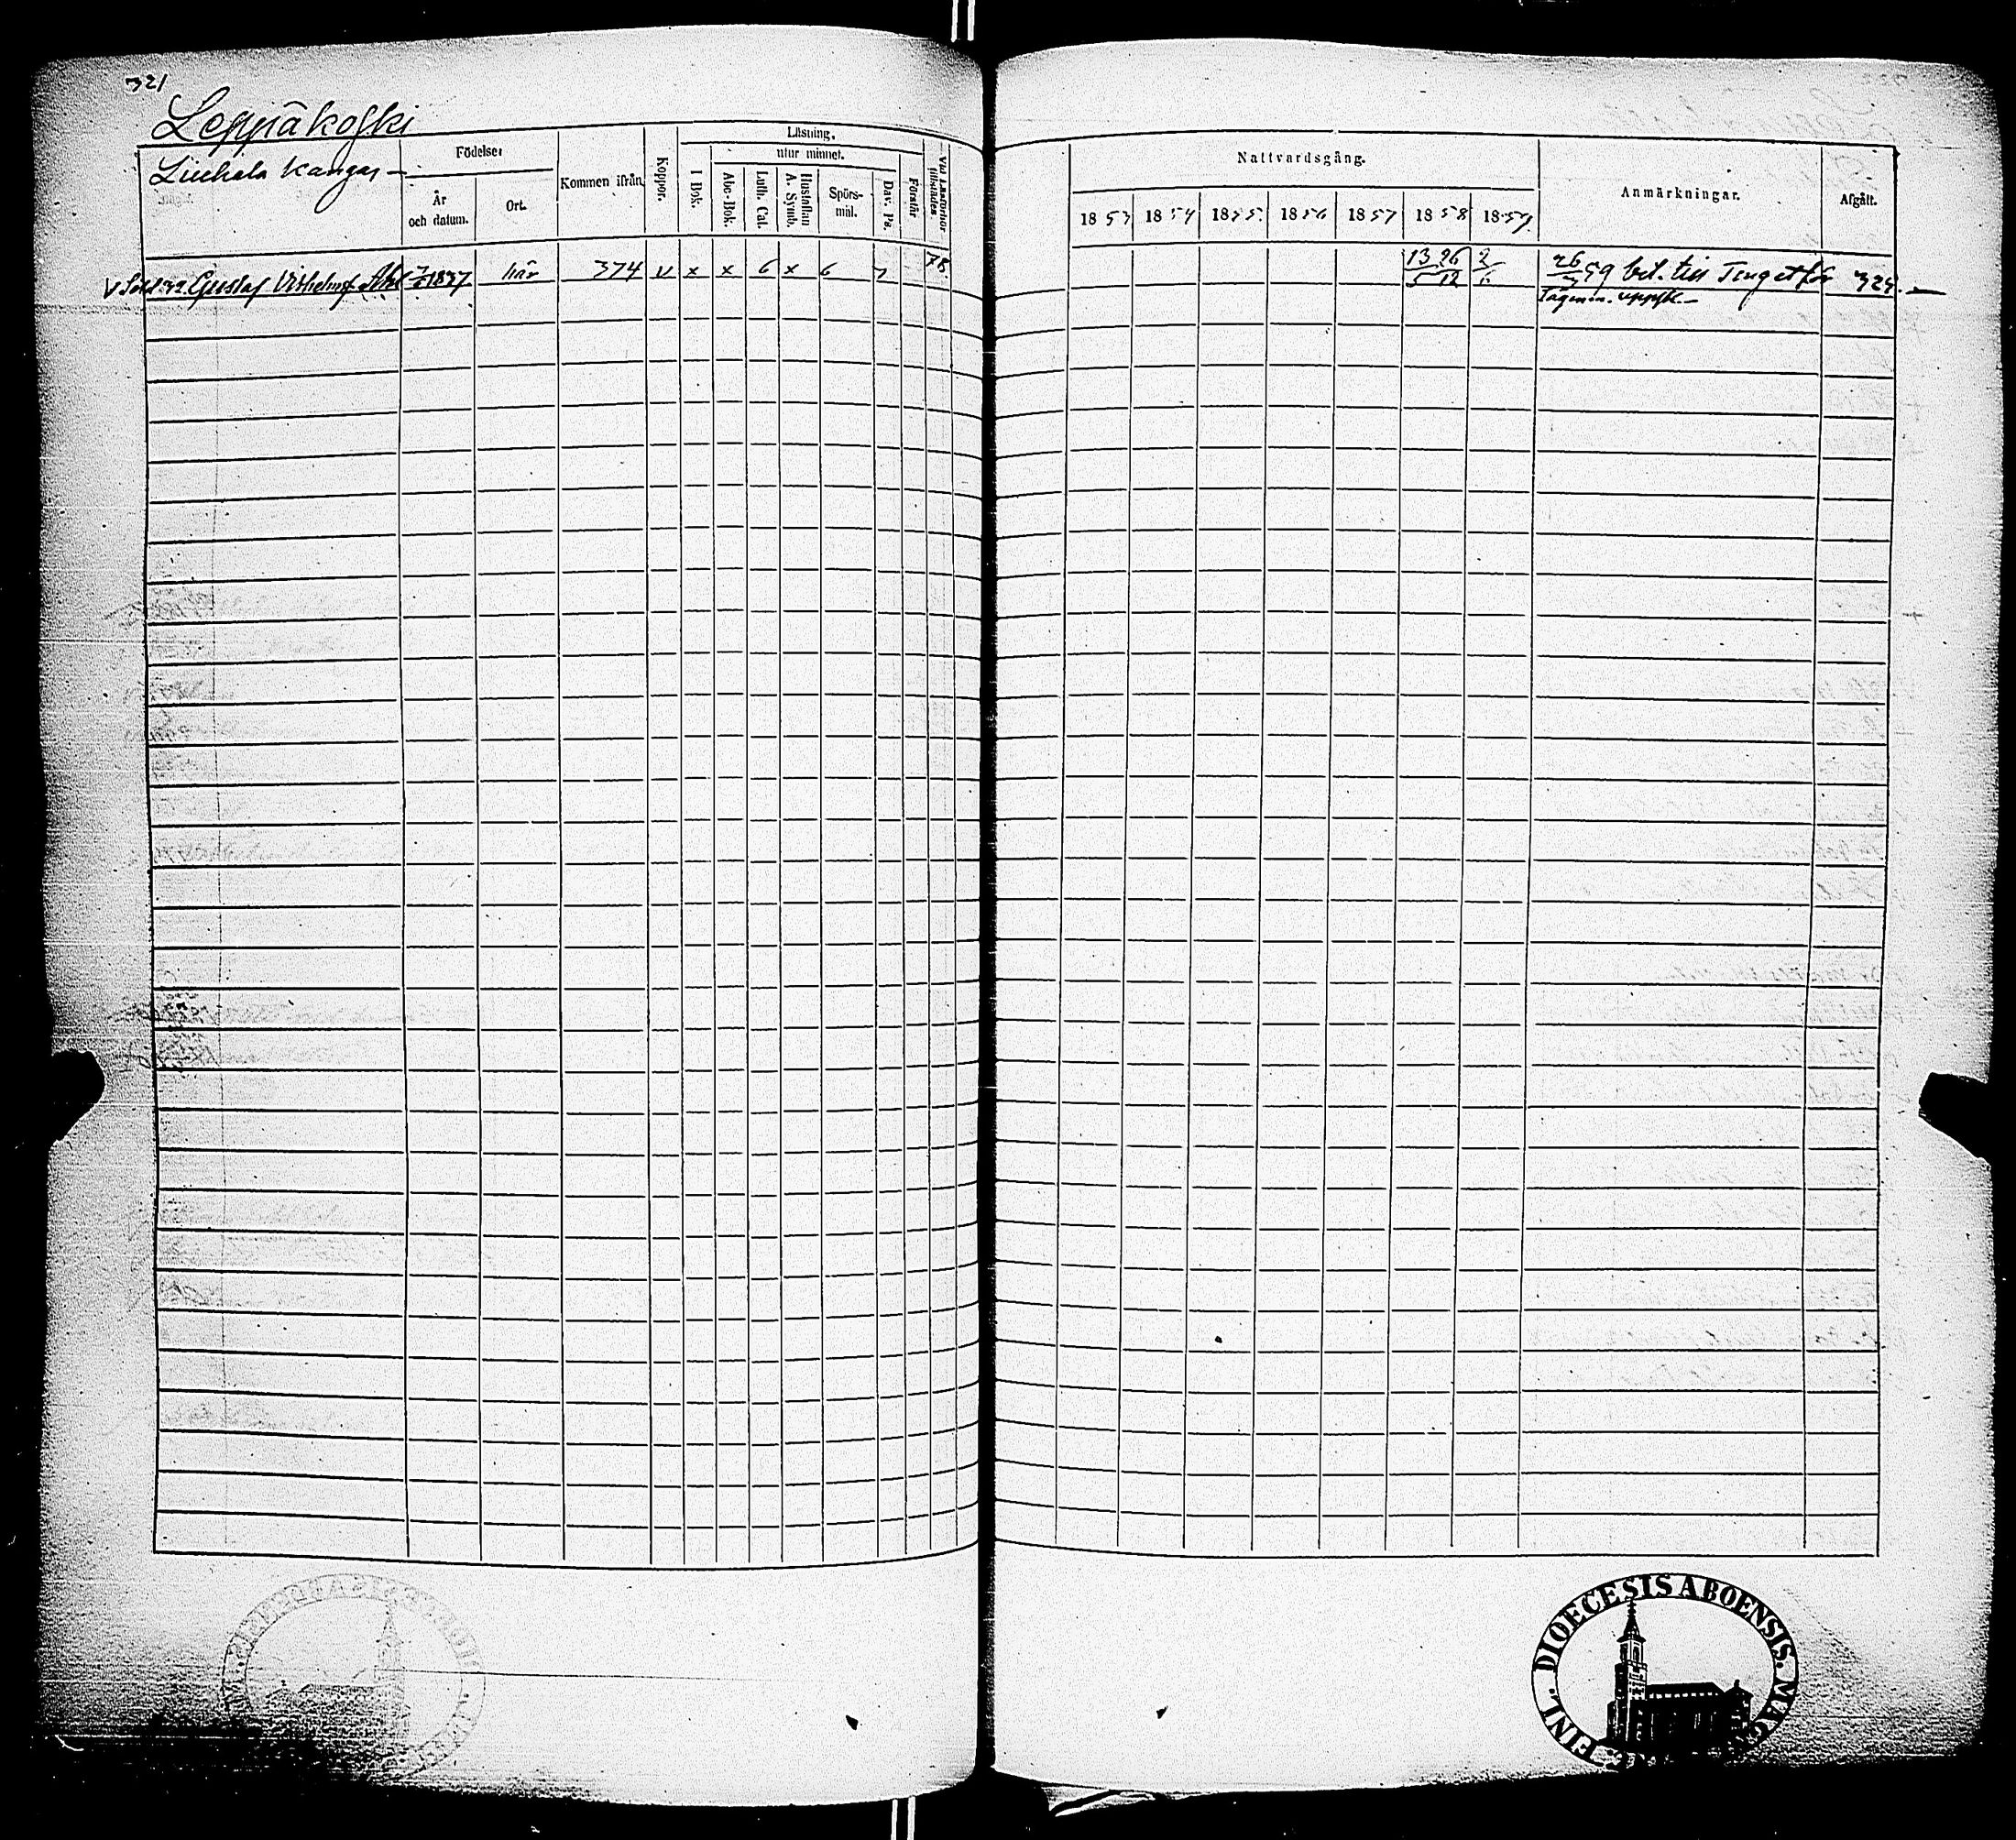 321
Leppäkoski
Liuhala Kangas
Födelse:
År och datum.
Ort.
Kommen ifrån
Koppor.
Läsning.
I Bok.
utur minnet.
Abc-Bok.
Luth. Cat.
Hustaflan A. Symb.
Spörs-mål.
Dav. Ps.
Förstår
Vid Läseförhör tillstädes
Gustaf Vilhelm 1837 här 374 v x x 6 x 6 7
Nattvardsgång.
1853 1854 1855 1856 1857 1858 1859
Anmärkningar.
Afgått.
13 26 2
5 12
26 59 bet. till
DIOECESIS ABOENSIS. MAG. FINL.